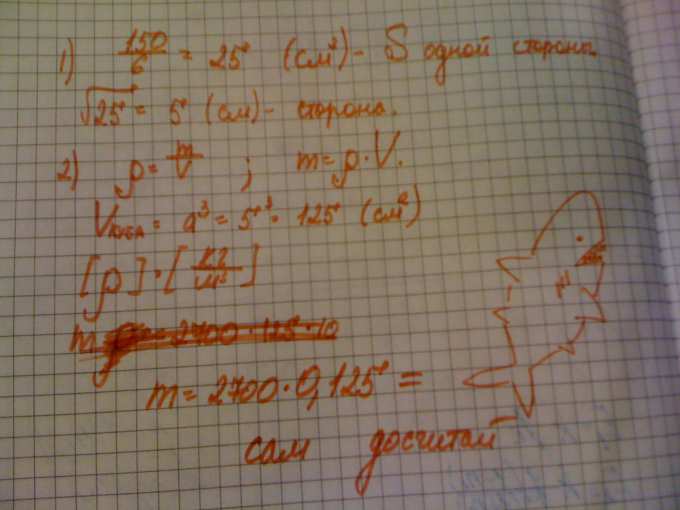 1) 150/6 = 25 (см²) - S одной стороны
√25 = 5 (см) - сторона.
2) ρ = m/V ; m = ρ · V.
Vкуба = a³ = 5³ = 125 (см²)
[ρ] = [кг/м³]
m = 2700 · 125 · 10
m = 2700 · 0,125 =
сам досчитай